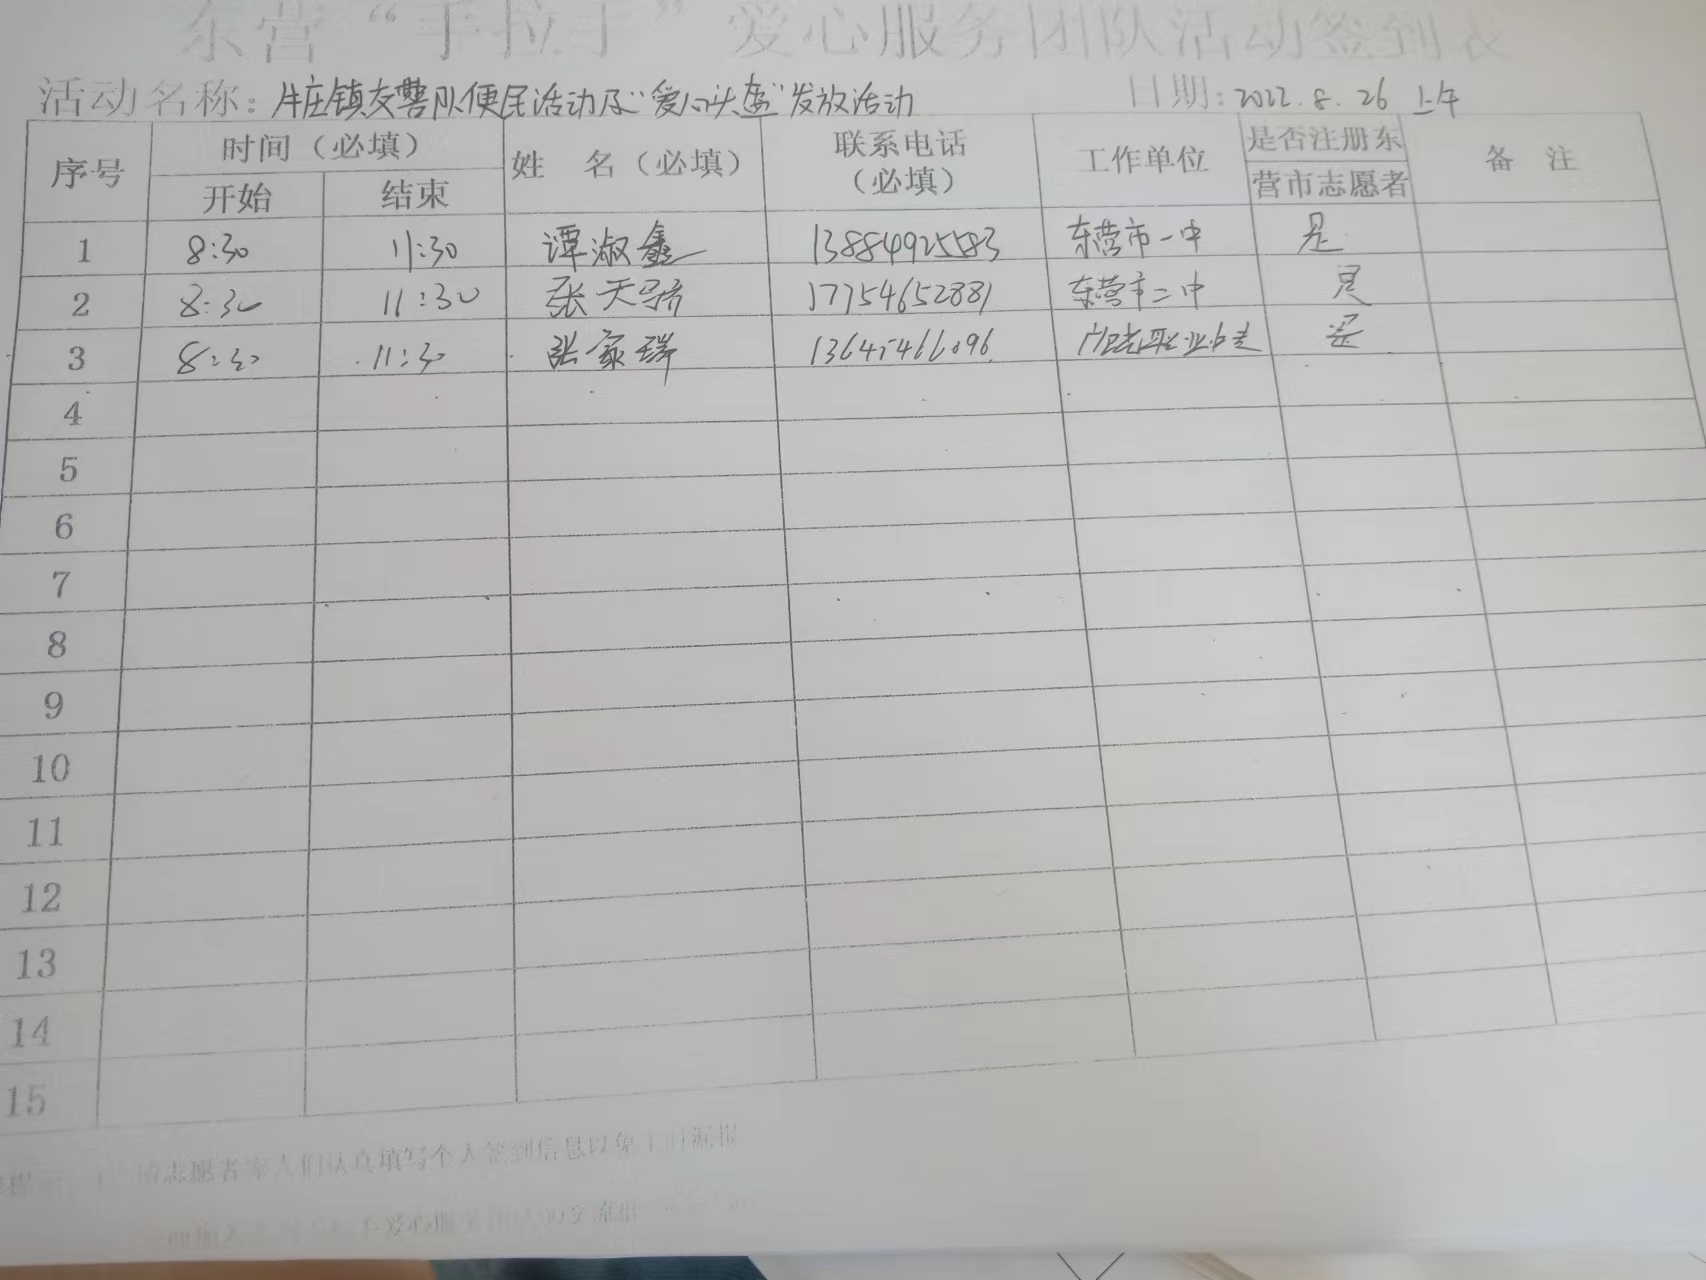 东营“手拉手”爱心服务团队活动签到表
活动名称: 牛庄镇交警队便民活动及“爱心头盔”发放活动 日期: 2022.8.26 上午
序号 时间（必填） 姓 名（必填） 联系电话（必填） 工作单位 是否注册东营市志愿者 备 注
开始 结束
1 8:30 11:30 谭淑鑫 13884925583 东营市一中 是
2 8:30 11:30 张天骄 17754652881 东营市二中 是
3 8:30 11:30 张家瑞 13645466096 是
4
5
6
7
8
9
10
11
12
13
14
15
请志愿者家人们认真填写个人签到信息以免
手爱心服务